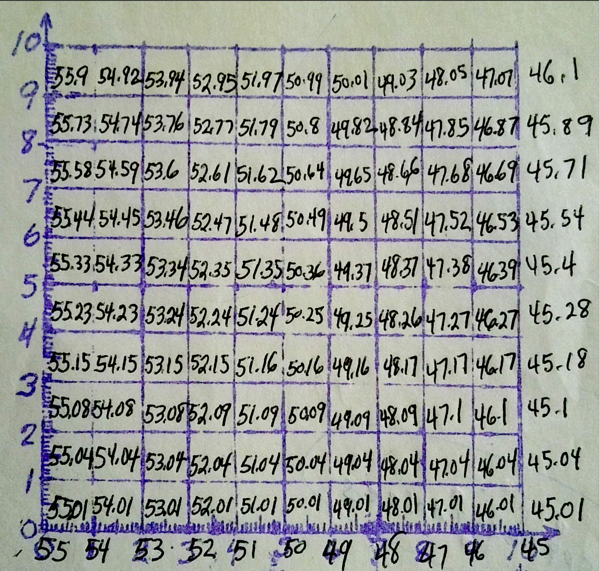 10
55.9 54.92 53.94 52.95 51.97 50.99 50.01 49.03 48.05 47.07 46.1
9
55.73 54.74 53.76 52.77 51.79 50.8 49.82 48.84 47.85 46.87 45.89
8
55.58 54.59 53.6 52.61 51.62 50.64 49.65 48.66 47.68 46.69 45.71
7
55.44 54.45 53.46 52.47 51.48 50.49 49.5 48.51 47.52 46.53 45.54
6
55.33 54.33 53.34 52.35 51.35 50.36 49.37 48.37 47.38 46.39 45.4
5
55.23 54.23 53.24 52.24 51.24 50.25 49.25 48.26 47.27 46.27 45.28
4
55.15 54.15 53.15 52.15 51.16 50.16 49.16 48.17 47.17 46.17 45.18
3
55.08 54.08 53.08 52.09 51.09 50.09 49.09 48.09 47.1 46.1 45.1
2
55.04 54.04 53.04 52.04 51.04 50.04 49.04 48.04 47.04 46.04 45.04
1
55.01 54.01 53.01 52.01 51.01 50.01 49.01 48.01 47.01 46.01 45.01
0
55 54 53 52 51 50 49 48 47 46 45